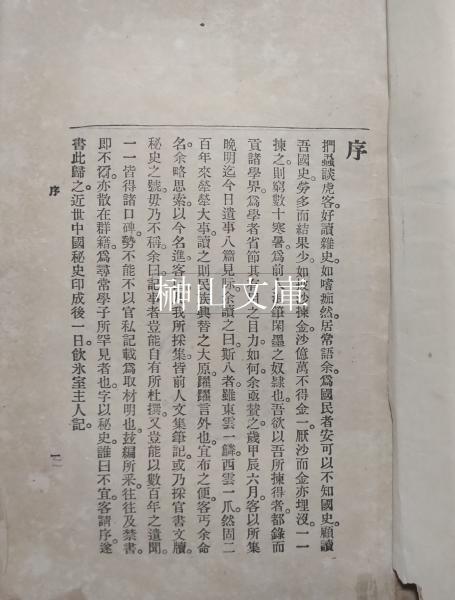 序
捫蝨談虎客好讀雜史如嗜痂然居常語余爲國民者安可以不知國史顧讀
吾國史勞多而結果少如披沙揀金沙億萬不得金一厭沙而金亦埋沒一一
揀之則窮數十寒暑爲前人近筆閑墨之奴隸也吾欲以吾所揀得者都錄而
貢諸學界爲學者省節其歲月之目力如何余亟贊之歲甲辰六月客以所集
晚明迄今日遺事八篇見眎余讀之曰斯八者雖東雲一鱗西雲一爪然固二
百年來犖犖大事讀之則民族興替之大原躍躍言外也宜布之便客丐余命
名余略思索以今名進客曰我所採集皆前人文集筆記或乃採官書文牘
秘史之號毋乃不稱余曰記事者豈能自有所杜撰又豈能以數百年之遺聞
一一皆得諸口碑勢不能不以官私記載爲取材明也玆編所釆往往及禁書
即不爾亦散在群籍爲尋常學子所罕見者也字以秘史誰曰不宜客請序遂
書此歸之近世中國秘史印成後一日飮氷室主人記
序
一
榊山文庫